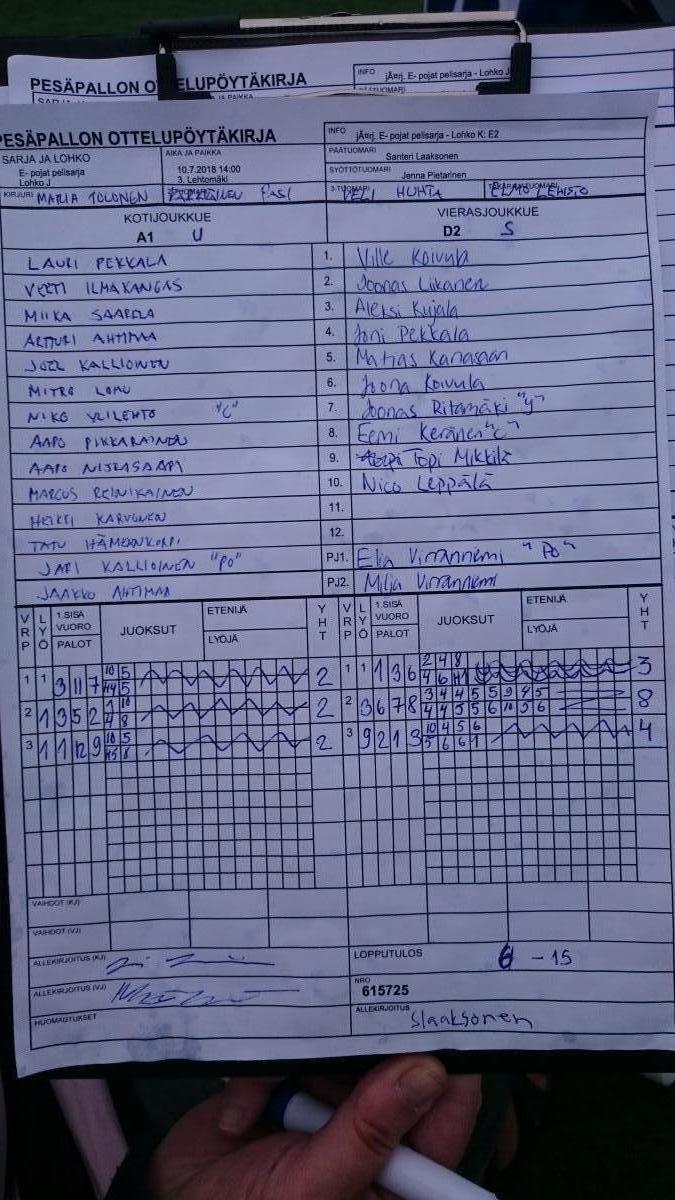 PESÄPALLON OTTELUPÖYTÄKIRJA
INFO jÄarj. E- pojat pelisarja - Lohko J
PESÄPALLON OTTELUPÖYTÄKIRJA
INFO jÄarj. E- pojat pelisarja - Lohko K: E2
SARJA JA LOHKO
E- pojat pelisarja
Lohko J
AIKA JA PAIKKA
10.7.2018 14:00
3. Lehtomäki
PÄÄTUOMARI
Santeri Laaksonen
SYÖTTÖTUOMARI
Jenna Pietarinen
KIRJURI MARIA TOLONEN
PASI
VELI HUHTA
ELMO LEHISTO
KOTIJOUKKUE
A1 U
VIERASJOUKKUE
D2 S
LAURI PEKKALA 1. Ville Koivula
VEETI ILMAKANGAS 2. Joonas Liikanen
MIIKA SAARELA 3. Aleksi Kujala
ARTTURI AHTIMAA 4. Joni Pekkala
JOEL KALLIOINEN 5. Matias Kanasaari
MITRO LOMU 6. Joona Koivula
NIKO YLILEHTO "C" 7. Joonas Ritamäki "J"
AAPO PIKKARAINEN 8. Eemi Keränen "C"
AAPO 9. Topi Mikkilä
MARCUS REINIKAINEN 10. Nico Leppälä
HEIKKI KARVONEN 11.
TATU HÄMEENKORPI 12.
JARI KALLIOINEN "PO" PJ1. Elia Virrannemi "PO"
JAAKKO AHTIMAA PJ2. Milja Virrannemi
VRP LYÖ 1.SISÄ VUORO PALOT JUOKSUT ETENIJÄ LYÖJÄ YHT VRP LYÖ 1.SISÄ VUORO PALOT JUOKSUT ETENIJÄ LYÖJÄ YHT
1 1 3 11 7 10 5 2 1 1 1 3 6 2 4 8 3
2 1 3 5 2 1 10 4 8 2 2 3 6 7 8 3 4 4 5 5 9 4 5 8
4 4 5 5 6 10 5 6
3 1 1 12 9 10 5 2 3 9 2 1 3 10 4 5 6 4
5 6 6 1
VAIHDOT (KJ)
VAIHDOT (VJ)
ALLEKIRJOITUS (KJ)
LOPPUTULOS 6 - 15
ALLEKIRJOITUS (VJ)
NRO
615725
HUOMAUTUKSET
ALLEKIRJOITUS
Slaaksonen